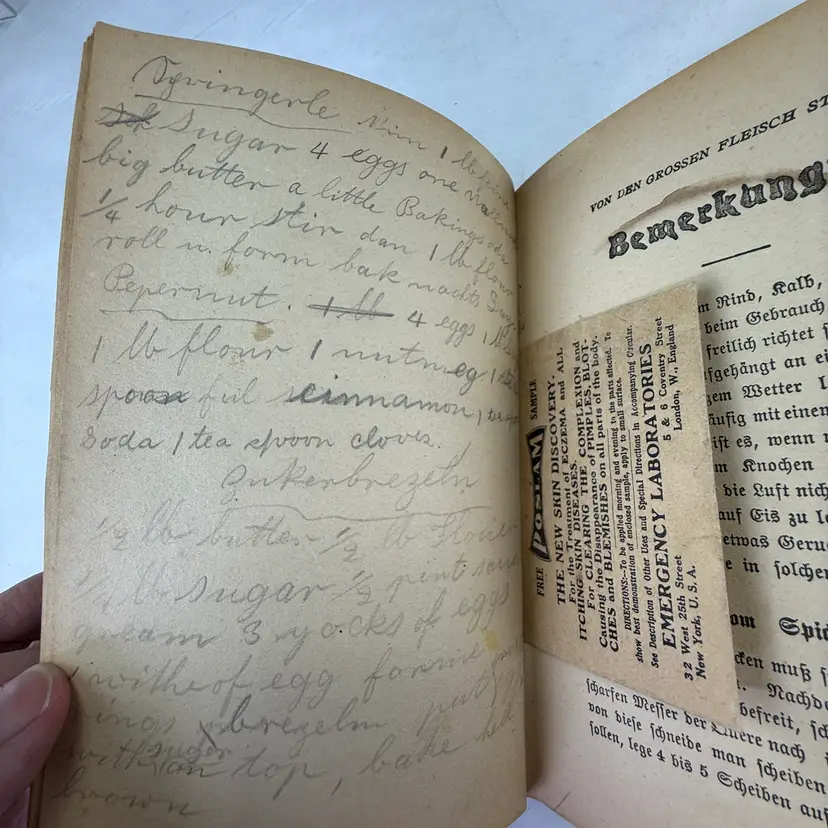 Springerle Nim 1 lb fein
Sugar 4 eggs one wallnut
big butter a little Bakingsoda
1/4 hour stir dan 1 lb flour
roll u. form bak nachts
Pepernut. 1 lb 4 eggs 1 lb
1 lb flour 1 nutmeg 1
spoon ful cinnamon 1 tea
Soda 1 tea spoon cloves.
Zukerbrezeln
1/2 lb butter 1/2 lb flour
lb sugar 1/2 pint sour
gream 3 yocks of eggs
withe of egg forme
rings u brezeln put
with sugar on top, bake hell
brown
VON DEN GROSSEN FLEISCH ST
Bemerkung
m Rind, Kalb,
beim Gebrauch
freilich richtet s
fgehängt an ei
gem Wetter l
äufig mit einem
ist es, wenn
m Knochen
die Luft nich
auf Eis zu le
etwas Geru
e in solchen
om Spic
cken muß
Nachde
scharfen Messer der Quere nach
befreit, s
von diese schneide man scheiben
sollen, lege 4 bis 5 Scheiben auf
FREE POSLAM SAMPLE
THE NEW SKIN DISCOVERY.
For the Treatment of ECZEMA and ALL
ITCHING SKIN DISEASES.
For CLEARING THE COMPLEXION and
Causing the Disappearance of PIMPLES, BLOT-
CHES and BLEMISHES on all parts of the body.
DIRECTIONS:-To be applied morning and evening to the parts affected. To
show best demonstration of enclosed sample, apply to small surface.
See Description of Other Uses and Special Directions in Accompanying Circular.
EMERGENCY LABORATORIES
32 West 25th Street 5 & 6 Coventry Street
New York, U. S. A. London, W., England